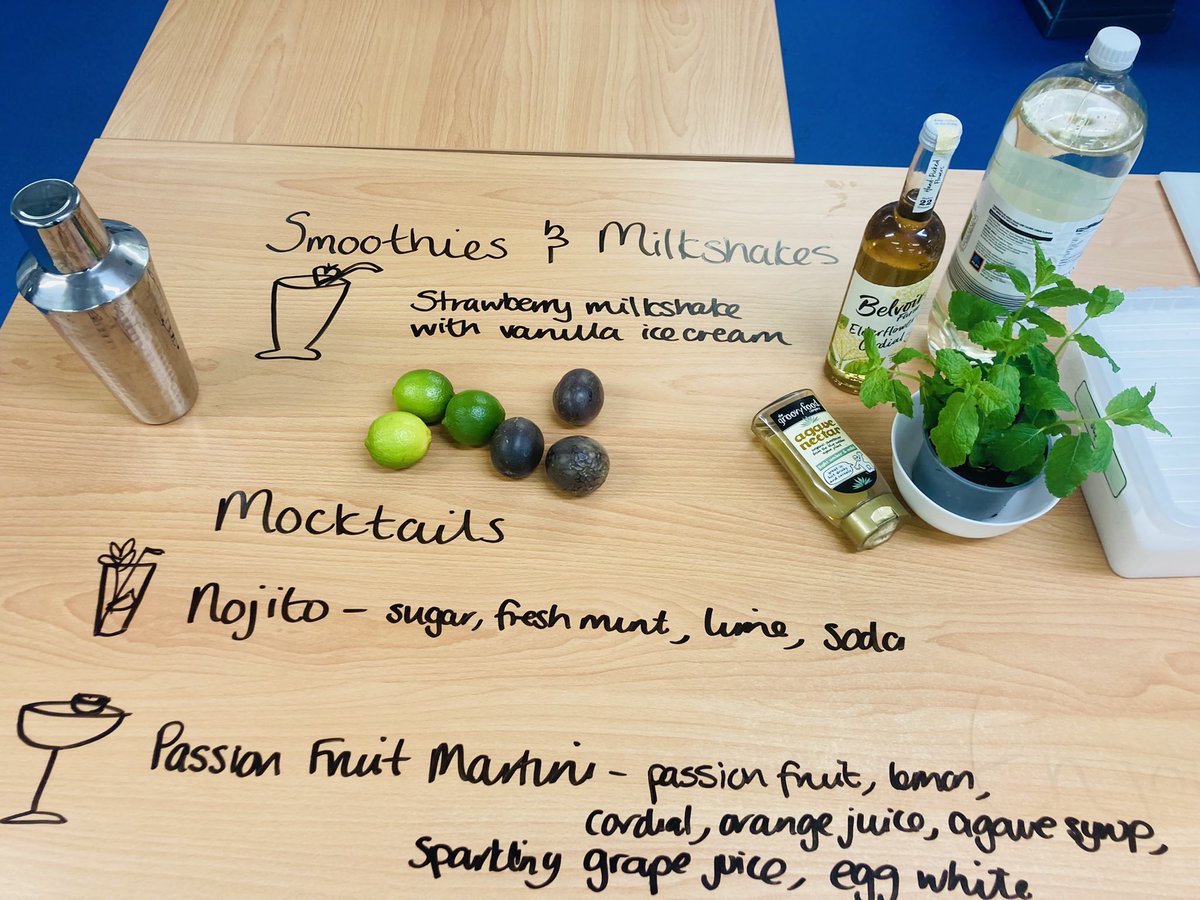 Smoothies & Milkshakes
Strawberry milkshake
with vanilla ice cream
Hand-Picked
Flowers
Belvoir
Farm
Elderflower
Cordial
groovyfood
agave
nectar
Mocktails
Nojito – sugar, fresh mint, lime, soda
Passion Fruit Martini – passion fruit, lemon,
cordial, orange juice, agave syrup,
Sparkling grape juice, egg white